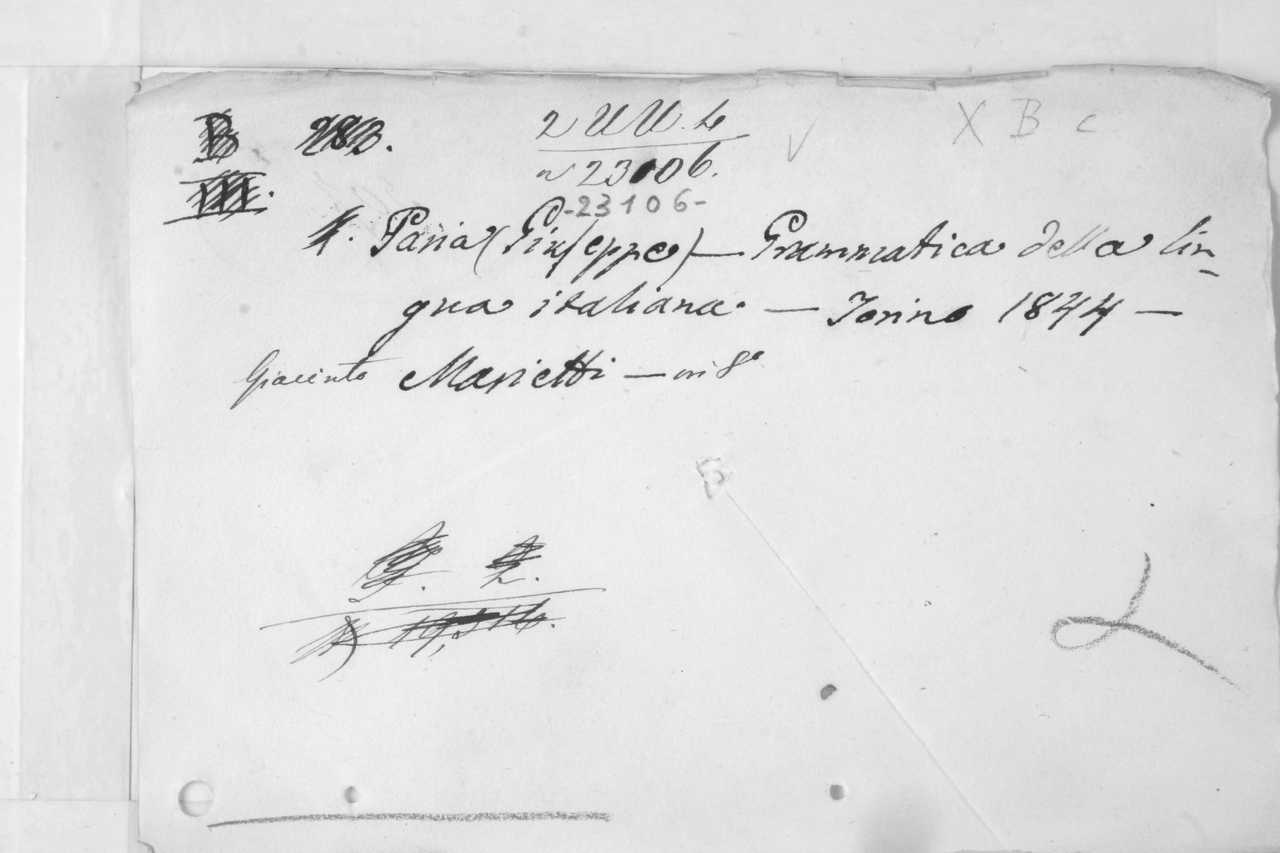 B 283.
III.
2 UU. 4
n 23106.
-23106-
X B c
Paria (Giuseppe) — Grammatica della lin-
gua italiana. — Torino 1844 —
Giacinto Marietti — in 8°